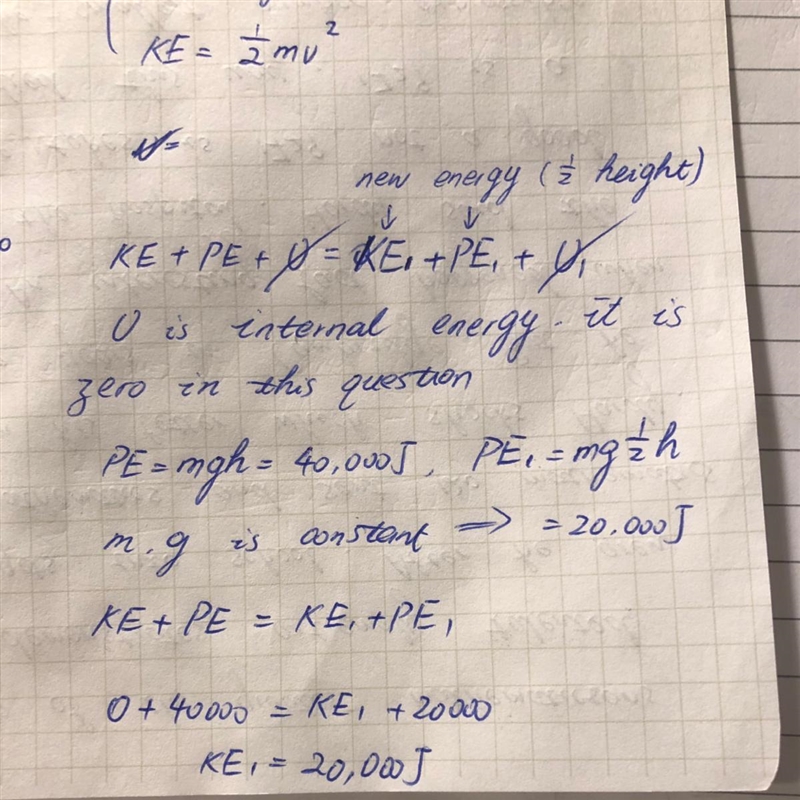 KE = ½mv²
U=
new energy (½ height)
↓ ↓
KE + PE + U = KE₁ + PE₁ + U₁
U is internal energy. it is
zero in this question
PE = mgh = 40,000J, PE₁ = mg½h
m.g is constant ⟹ = 20.000J
KE + PE = KE₁ + PE₁
0 + 40000 = KE₁ + 20000
KE₁ = 20,000J